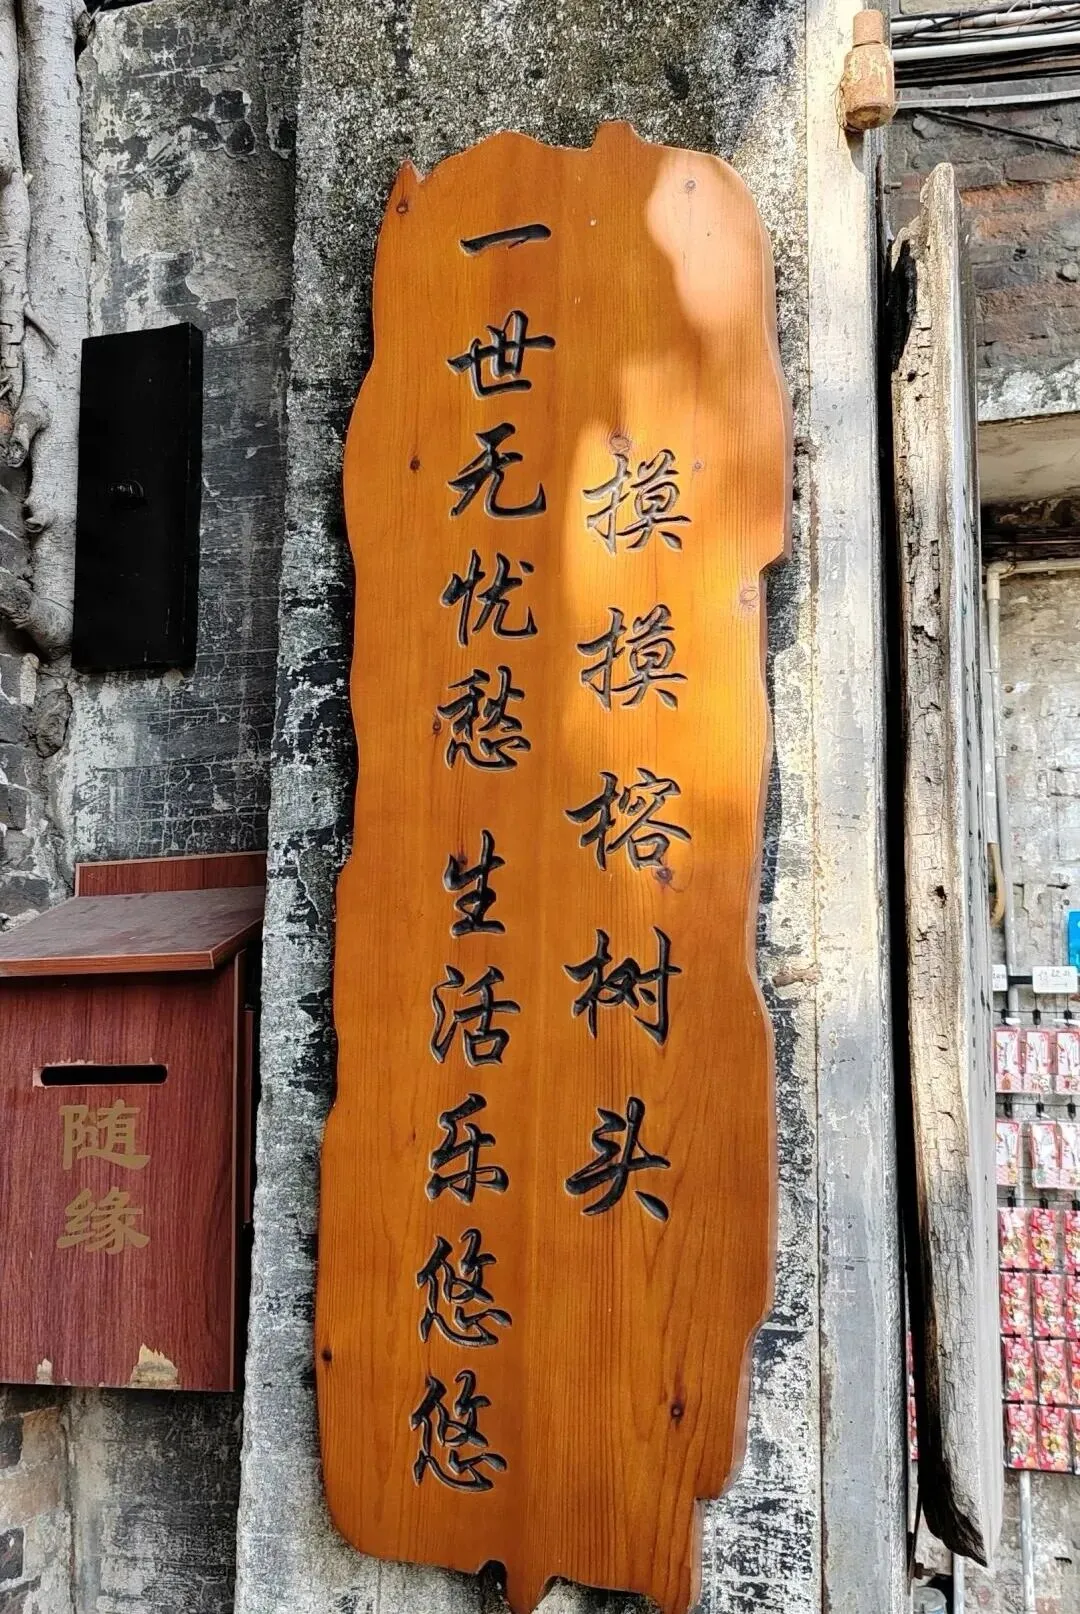 摸摸榕树头
一世无忧愁 生活乐悠悠
随缘